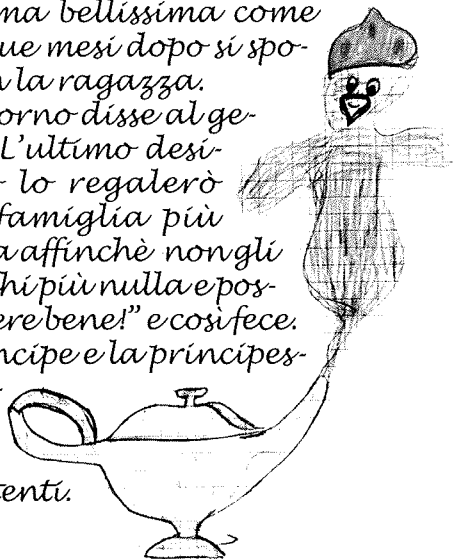 ma bellissima come
ue mesi dopo si spo-
la ragazza.
orno disse al ge-
L'ultimo desi-
lo regalerò
famiglia più
a affinchè non gli
chi più nulla e pos-
ere bene!" e così fece.
ncipe e la principes-
tenti.